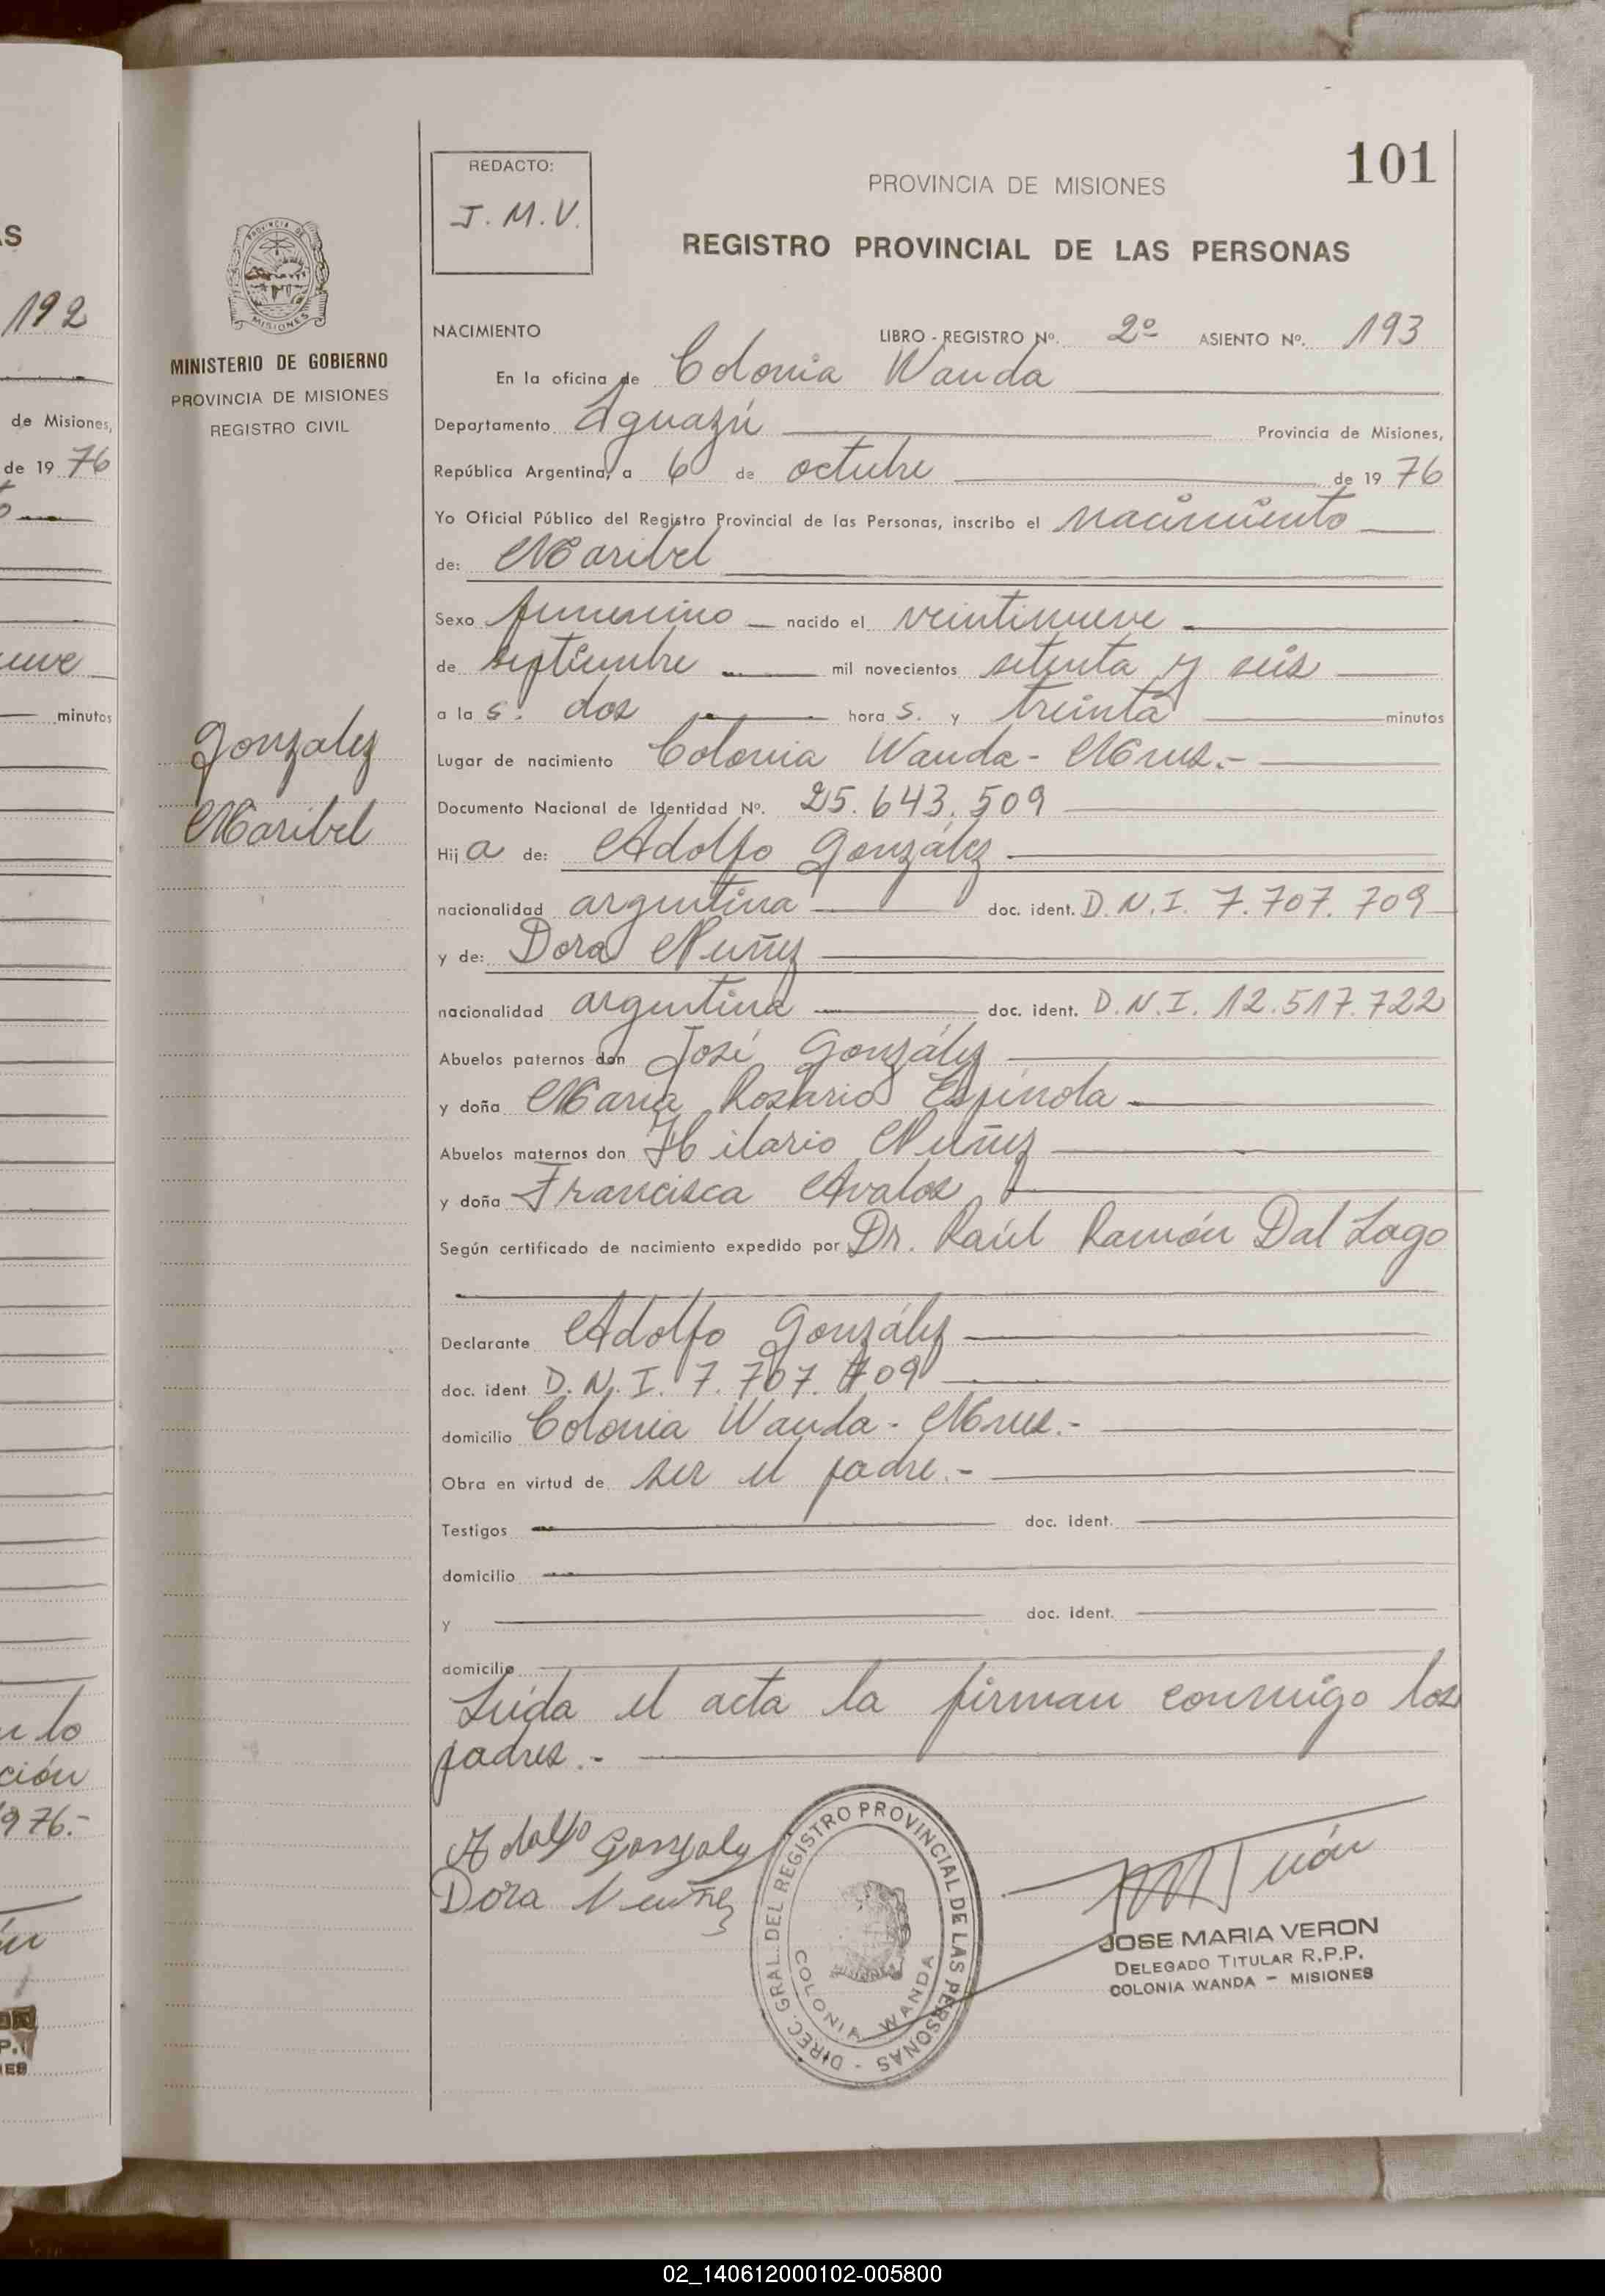 101
REDACTO:
J. M. V.
PROVINCIA DE MISIONES
REGISTRO PROVINCIAL DE LAS PERSONAS
PROVINCIA DE
MISIONES
MINISTERIO DE GOBIERNO
PROVINCIA DE MISIONES
REGISTRO CIVIL
Gonzalez
Maribel
NACIMIENTO LIBRO - REGISTRO Nº. 2º ASIENTO Nº. 193
En la oficina de Colonia Wanda
Departamento Iguazú Provincia de Misiones,
República Argentina, a 6 de octubre de 19 76
Yo Oficial Público del Registro Provincial de las Personas, inscribo el nacimiento
de: Maribel
Sexo femenino — nacido el veintinueve
de septiembre mil novecientos setenta y seis
a la s. dos hora s. y treinta minutos
Lugar de nacimiento Colonia Wanda - Mnes.-
Documento Nacional de Identidad Nº. 25.643.509
Hij a de: Adolfo González
nacionalidad argentina doc. ident. D.N.I. 7.707.709
y de: Dora Nuñez
nacionalidad argentina doc. ident. D.N.I. 12.517.722
Abuelos paternos don José González
y doña Maria Rosario Espínola
Abuelos maternos don Hilario Nuñez
y doña Francisca Avalos
Según certificado de nacimiento expedido por Dr. Raúl Ramón Dal Lago
Declarante Adolfo González
doc. ident. D.N.I. 7.707.709
domicilio Colonia Wanda - Mnes.-
Obra en virtud de ser el padre.-
Testigos doc. ident.
domicilio
y doc. ident.
domicilio
Leída el acta la firman conmigo los
padres.-
Adolfo Gonzalez
Dora Nuñez
DIREC. GRAL. DEL REGISTRO PROVINCIAL DE LAS PERSONAS -
COLONIA WANDA
JOSE MARIA VERON
DELEGADO TITULAR R.P.P.
COLONIA WANDA - MISIONES
192
de Misiones,
de 19 76
minutos
lo
ción
976.-
02_140612000102-005800